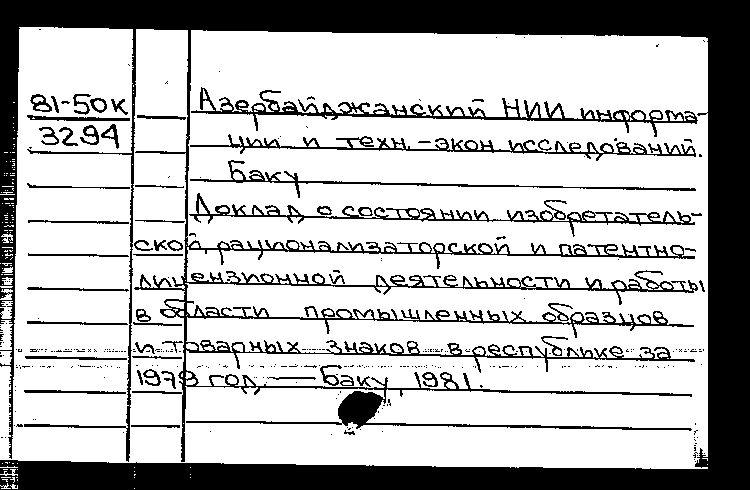 81-50к
3294
Азербайджанский НИИ информа-
ции и техн.-экон исследований.
Баку
Доклад о состоянии изобретатель-
ской, рационализаторской и патентно-
лицензионной деятельности и работы
в области промышленных образцов
и товарных знаков в республике за
1979 год. — Баку, 1981.